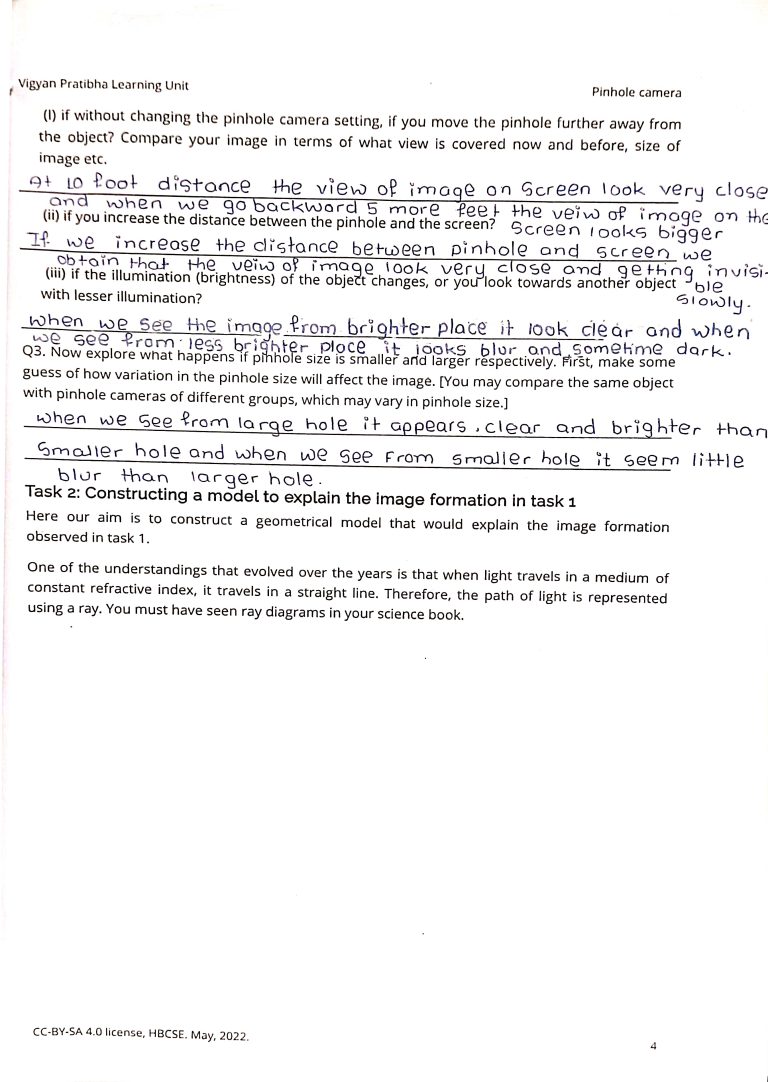 Vigyan Pratibha Learning Unit
Pinhole camera
(I) if without changing the pinhole camera setting, if you move the pinhole further away from
the object? Compare your image in terms of what view is covered now and before, size of
image etc.
At 10 foot distance the view of image on Screen look very close
and when we go backword 5 more feet the veiw of image on the
Screen looks bigger
(ii) if you increase the distance between the pinhole and the screen?
If we increase the distance between pinhole and screen we
obtain that the veiw of image look very close and getting invisi-
ble
slowly.
(iii) if the illumination (brightness) of the object changes, or you look towards another object
with lesser illumination?
when we see the image from brighter place it look clear and when
we see from less brighter place it looks blur and sometime dark.
Q3. Now explore what happens if pinhole size is smaller and larger respectively. First, make some
guess of how variation in the pinhole size will affect the image. [You may compare the same object
with pinhole cameras of different groups, which may vary in pinhole size.]
when we see from large hole it appears , clear and brighter than
smaller hole and when we see from smaller hole it seem little
blur than larger hole.
Task 2: Constructing a model to explain the image formation in task 1
Here our aim is to construct a geometrical model that would explain the image formation
observed in task 1.
One of the understandings that evolved over the years is that when light travels in a medium of
constant refractive index, it travels in a straight line. Therefore, the path of light is represented
using a ray. You must have seen ray diagrams in your science book.
CC-BY-SA 4.0 license, HBCSE. May, 2022.
4